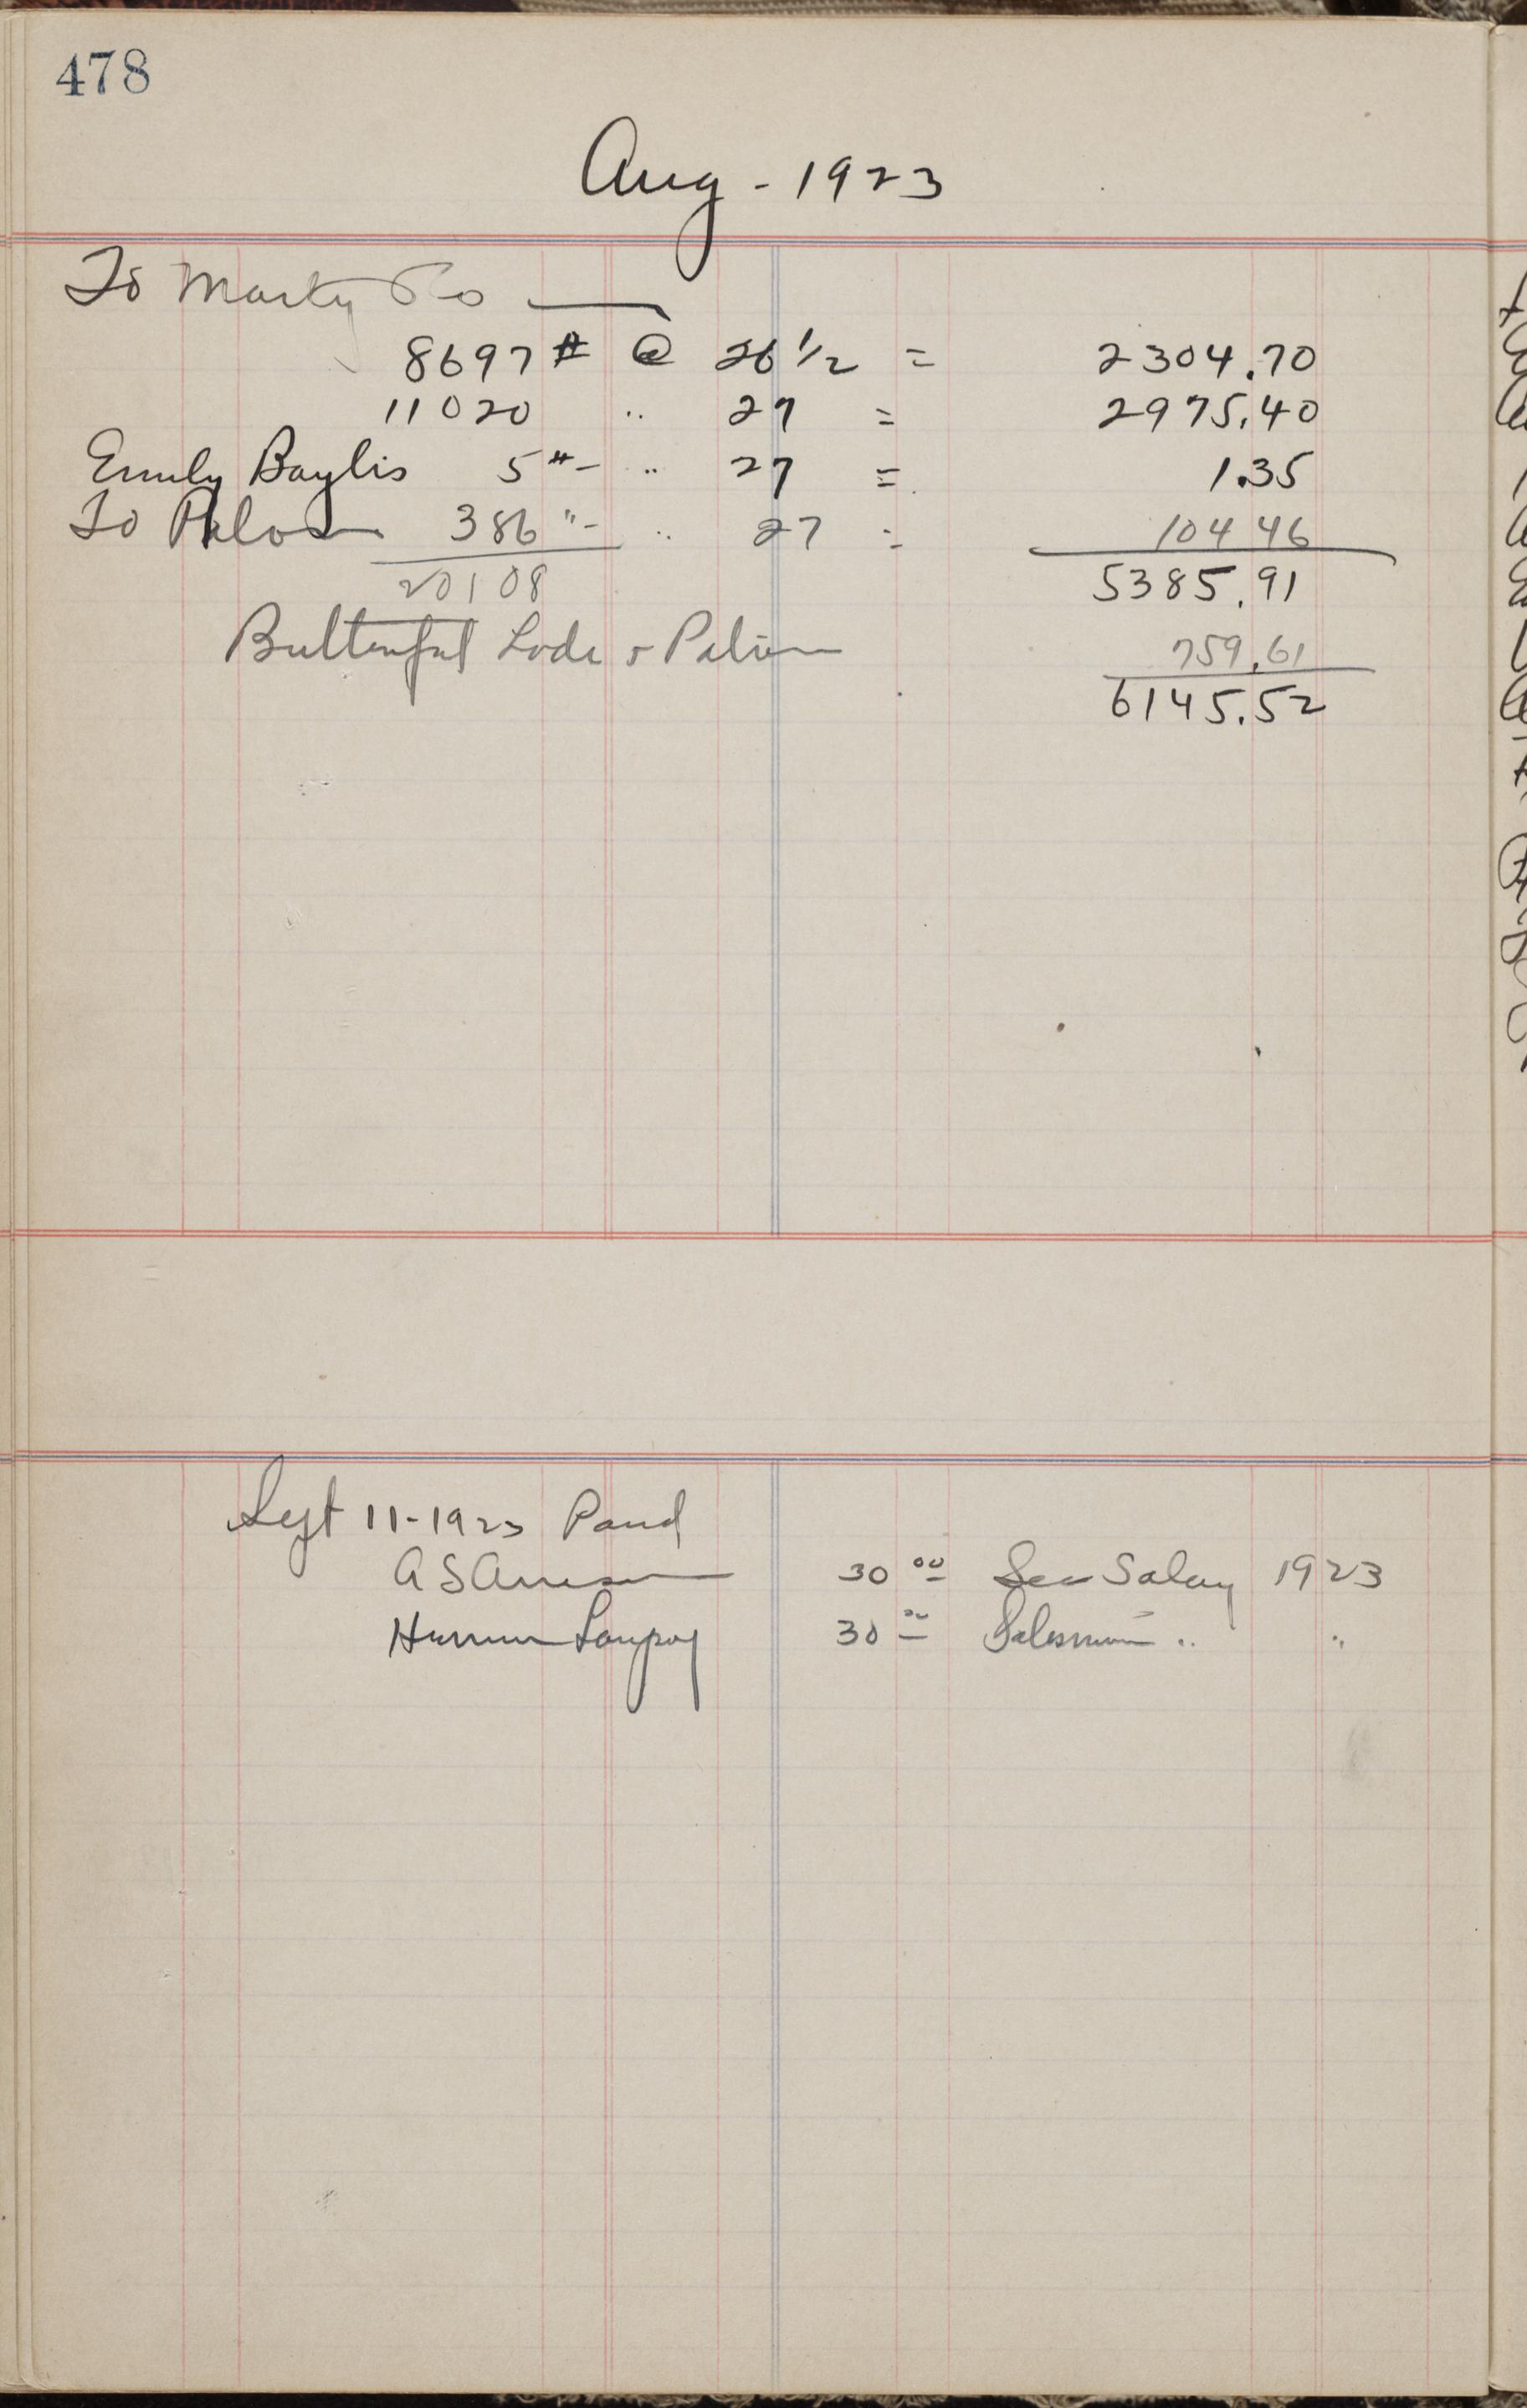 478
Aug - 1923
To Marty Co
8697 # @ 26 1/2 = 2304.70
11020 " 27 = 2975.40
Emily Baylis 5 # - " 27 = 1.35
To 386 " - " 27 = 104 46
20108 5385.91
Butterfat & 759.61
6145.52
Sept 11-1923 Paid
A S 30 00 Sec Salary 1923
Herman 30 00 Salesman " "